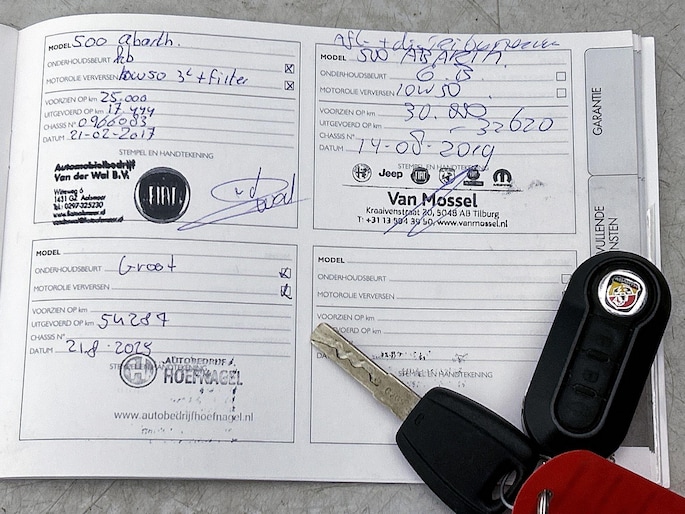 MODEL 500 abarth.
ONDERHOUDSBEURT
MOTOROLIE VERVERSEN 10w50 3L + filter
VOORZIEN OP km 25.000
UITGEVOERD OP km 17.444
CHASSIS N° 0966003
DATUM 21-02-2017
STEMPEL EN HANDTEKENING
Automobielbedrijf
Van der Wal B.V.
1431 GZ Aalsmeer
Tel.: 0297-325230
FIAT
MODEL 500 ABARTH
ONDERHOUDSBEURT
MOTOROLIE VERVERSEN 10W50
VOORZIEN OP km 30.000
UITGEVOERD OP km 32620
CHASSIS N°
DATUM 14-08-2019
STEMPEL EN HANDTEKENING
Jeep FIAT
Van Mossel
Kraaivenstraat 20, 5048 AB Tilburg
www.vanmossel.nl
MODEL
ONDERHOUDSBEURT Groot
MOTOROLIE VERVERSEN
VOORZIEN OP km
UITGEVOERD OP km 54287
CHASSIS N°
DATUM 21.8-2025
STEMPEL EN HANDTEKENING
AUTOBEDRIJF
HOEFNAGEL
www.autobedrijfhoefnagel.nl
MODEL
ONDERHOUDSBEURT
MOTOROLIE VERVERSEN
VOORZIEN OP km
GARANTIE